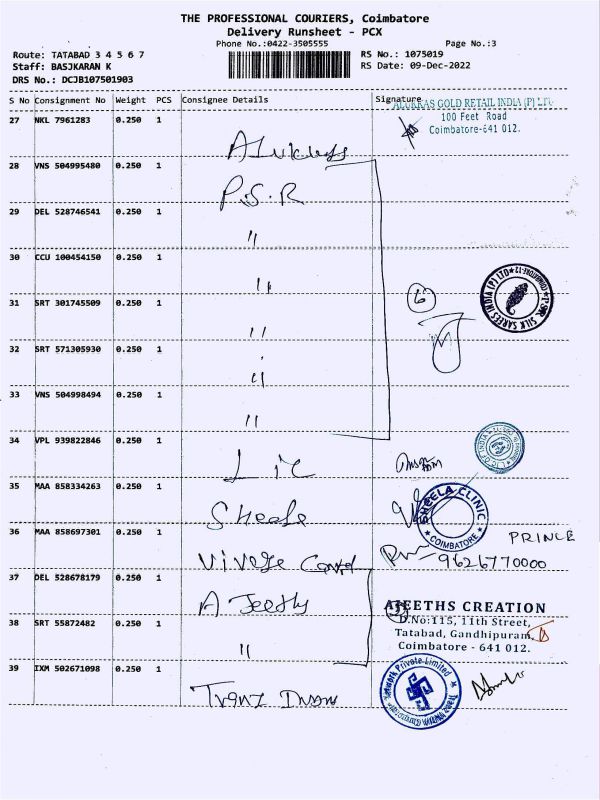 THE PROFESSIONAL COURIERS, Coimbatore
Delivery Runsheet - PCX
Phone No.:0422-3505555 Page No.:3
Route: TATABAD 3 4 5 6 7 RS No.: 1075019
Staff: BASJKARAN K RS Date: 09-Dec-2022
DRS No.: DCJB107501903
S No Consignment No Weight PCS Consignee Details Signature
ALUKKAS GOLD RETAIL INDIA (P) LTD
27 NKL 7961283 0.250 1 100 Feet Road
Coimbatore-641 012.
28 VNS 504995480 0.250 1
P.S.R
29 DEL 528746541 0.250 1
"
30 CCU 100454150 0.250 1
"
31 SRT 301745509 0.250 1 6
SILK SAREES INDIA (P) LTD
"
32 SRT 571305930 0.250 1
"
33 VNS 504998494 0.250 1
"
34 VPL 939822846 0.250 1
Lic
35 MAA 858334263 0.250 1
SHEELA CLINIC
COIMBATORE
36 MAA 858697301 0.250 1 PRINCE
9626770000
37 DEL 528678179 0.250 1
AJEETHS CREATION
D.No:115, 11th Street,
38 SRT 55872482 0.250 1 Tatabad, Gandhipuram,
" Coimbatore - 641 012.
39 IXM 502671098 0.250 1
Network Private Limited